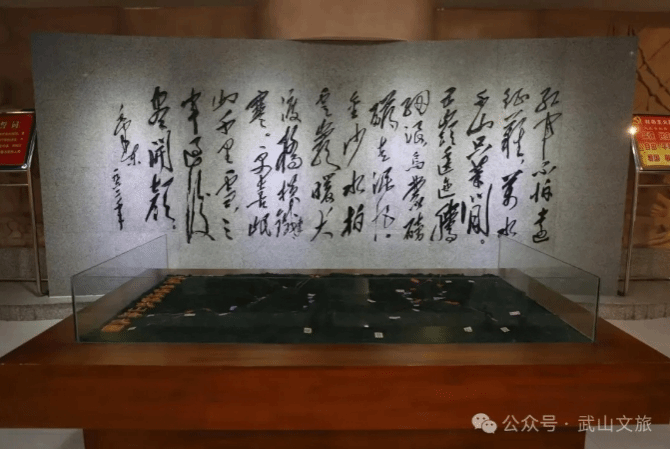 红军不怕远
征難萬水
千山只等闲。
五嶺逶迤腾
细浪烏蒙磅
礴走泥丸。
金沙水拍
雲崖暖大
渡橋横鐵索
寒。更喜岷
山千里雪三
军过后
盡開顏。
毛泽东
公众号 · 武山文旅